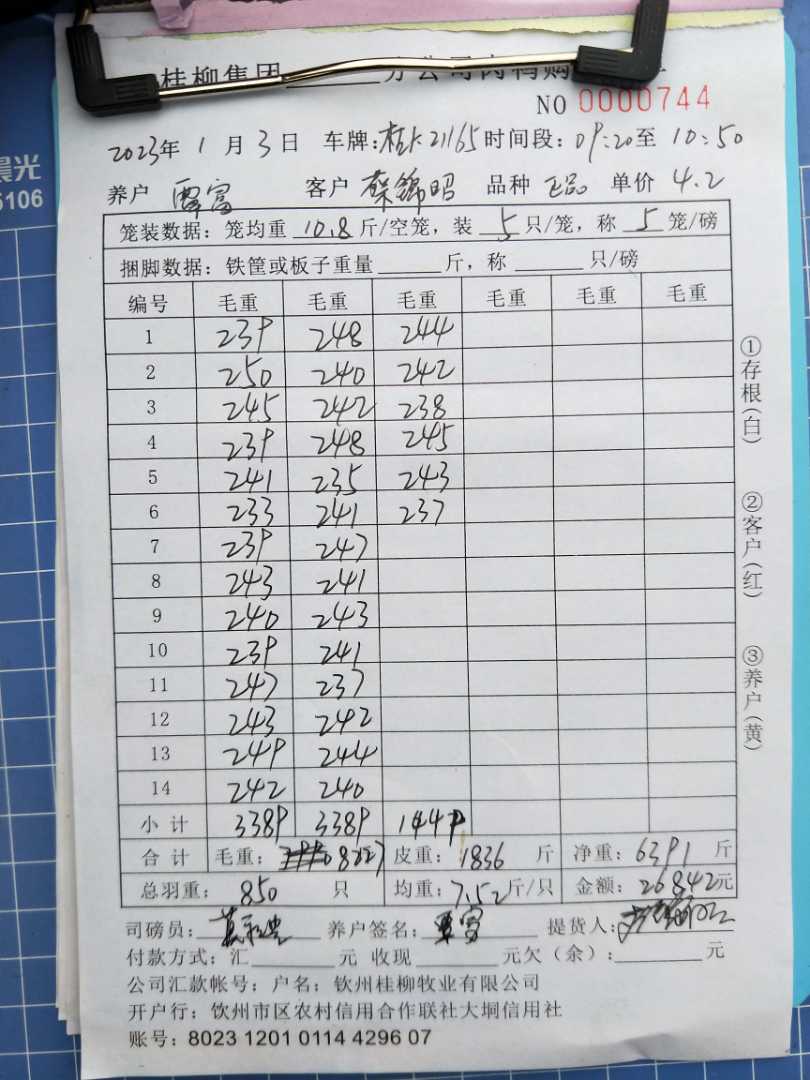 桂柳集团 分公司肉鸭购
NO 0000744
2023年 1 月 3 日 车牌:桂K21165 时间段: 09:20至 10:50
养户 覃富 客户 锦昭 品种 正品 单价 4.2
笼装数据: 笼均重 10.8 斤/空笼, 装 5 只/笼, 称 5 笼/磅
捆脚数据: 铁筐或板子重量 斤, 称 只/磅
编号 毛重 毛重 毛重 毛重 毛重 毛重
1 239 248 244
2 250 240 242
3 245 242 238
4 239 248 245
5 241 235 243
6 233 241 237
7 239 247
8 243 241
9 240 243
10 239 241
11 247 237
12 243 242
13 249 244
14 242 240
小计 3389 3389 1449
合计 毛重: 8227 皮重: 1836 斤 净重: 6391 斤
总羽重: 850 只 均重: 7.52 斤/只 金额: 26842元
司磅员: 养户签名: 覃富 提货人:
付款方式: 汇 元 收现 元欠(余): 元
公司汇款帐号: 户名: 钦州桂柳牧业有限公司
开户行: 钦州市区农村信用合作联社大垌信用社
账号: 8023 1201 0114 4296 07
①存根(白)
②客户(红)
③养户(黄)
晨光
5106